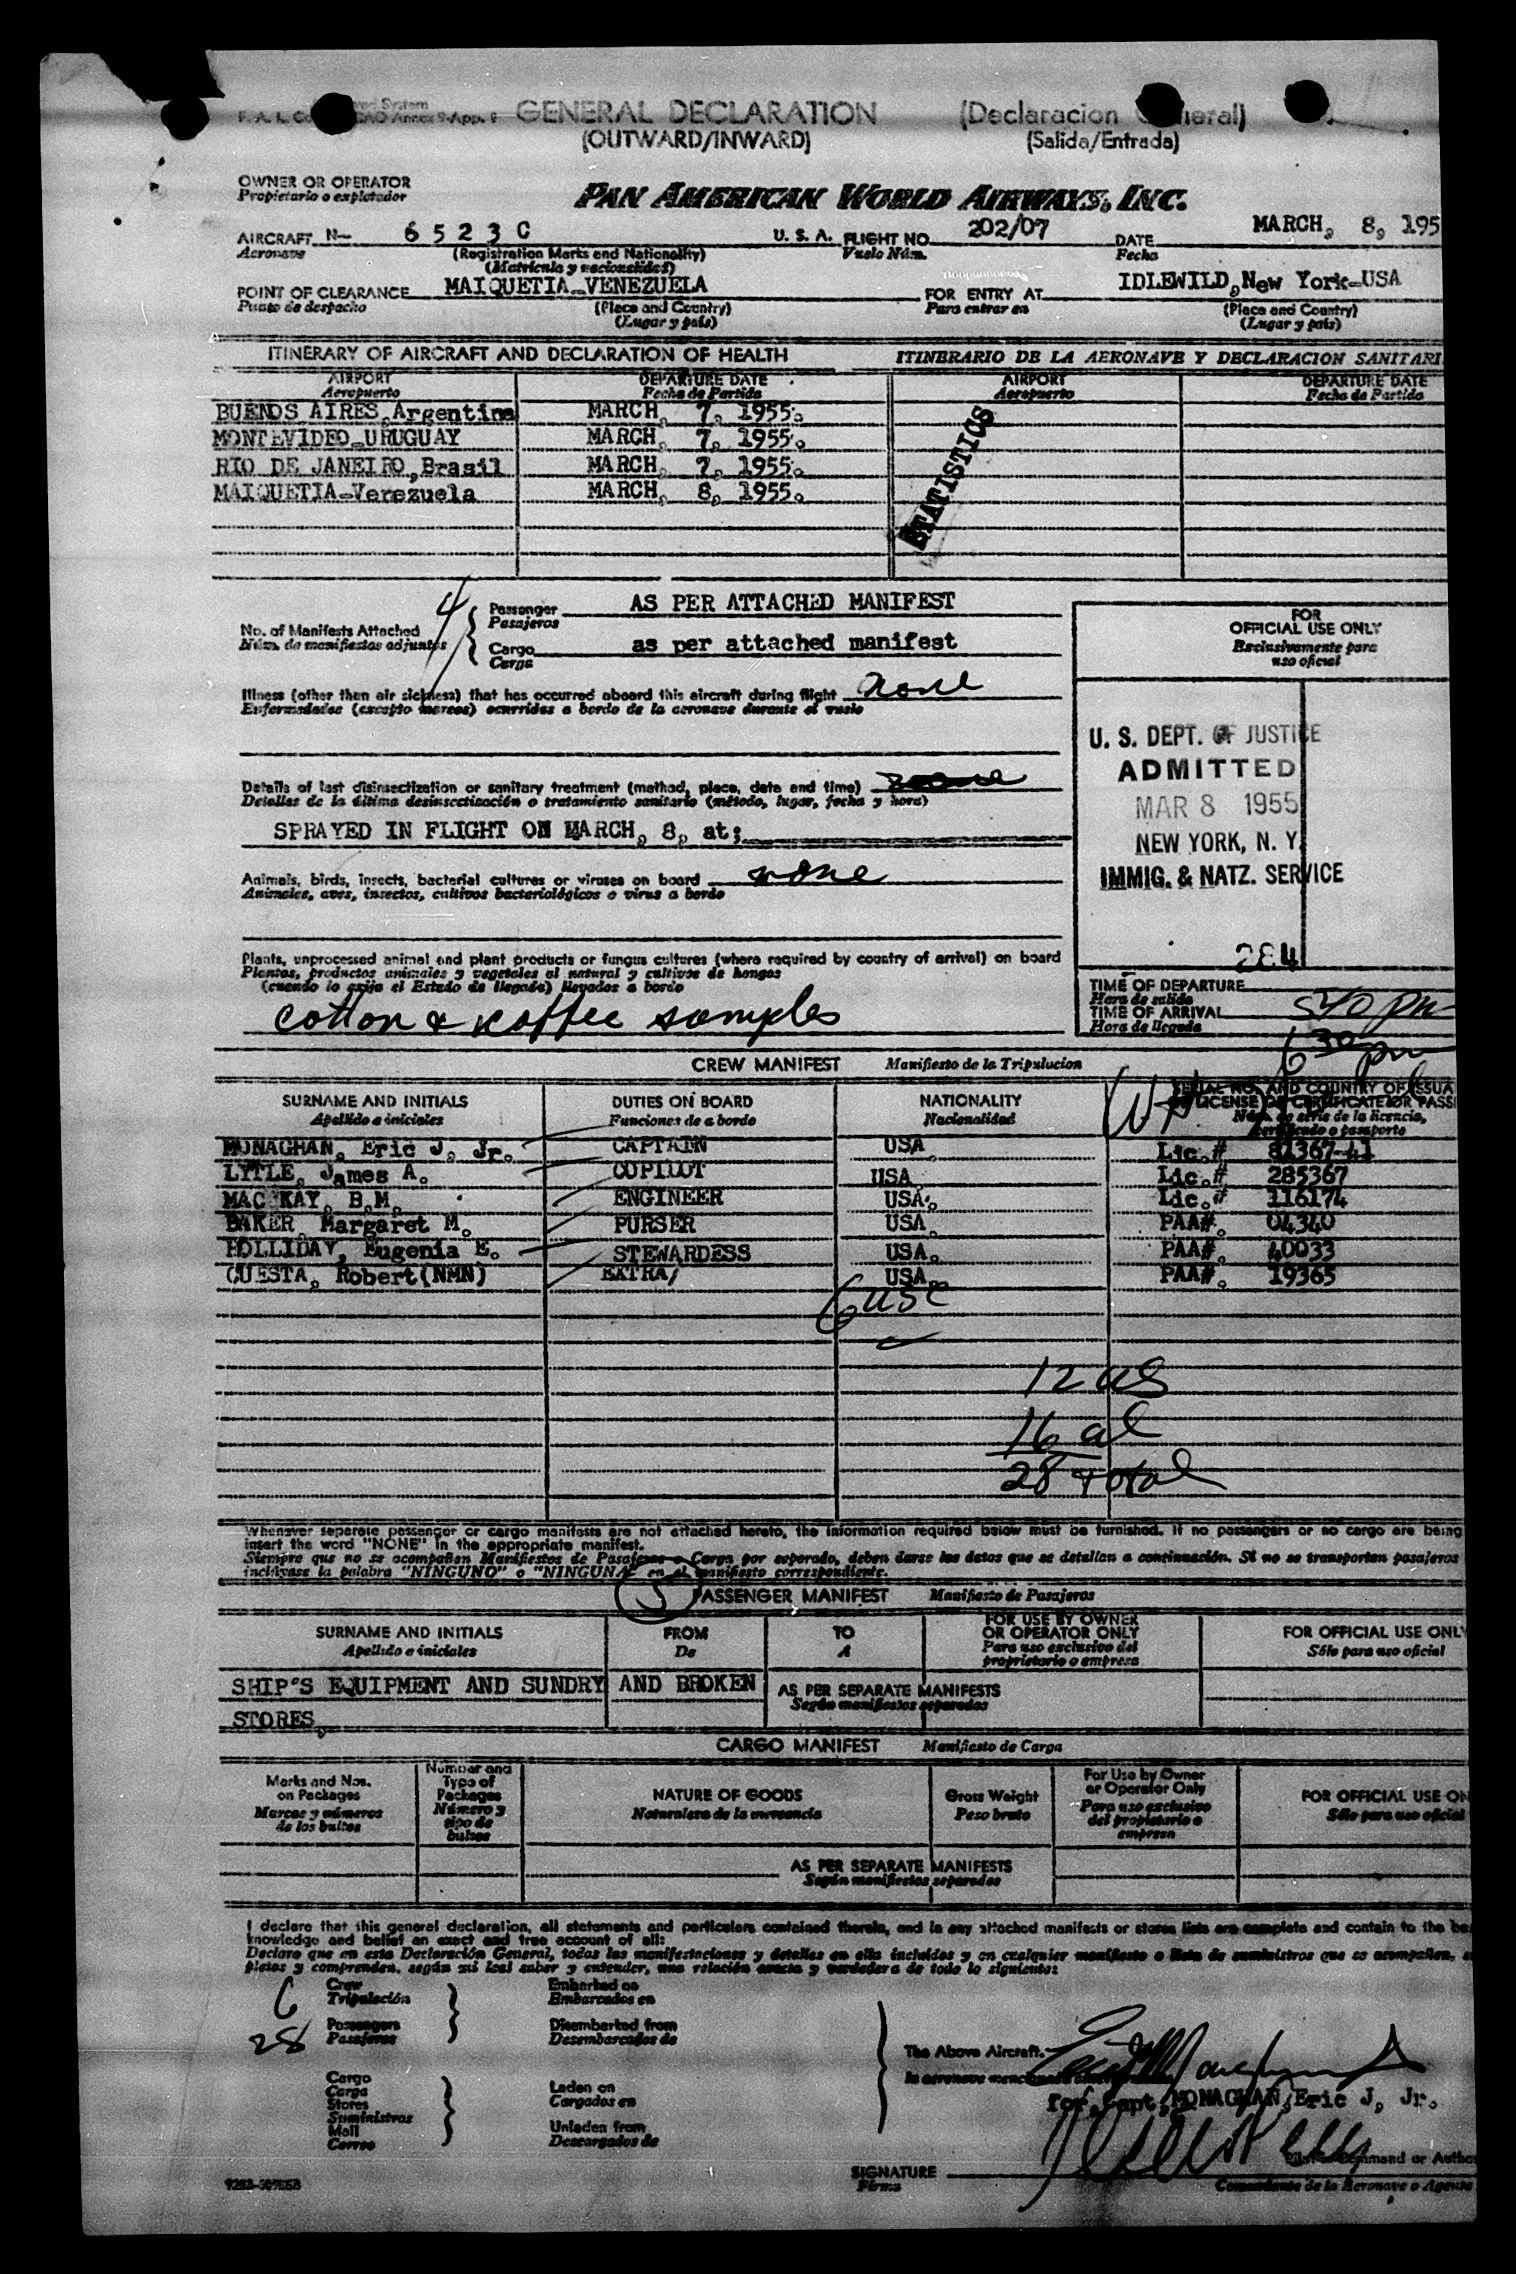 GENERAL DECLARATION (Declaracion General)
(OUTWARD/INWARD) (Salida/Entrada)
OWNER OR OPERATOR
Propietario o explotador
PAN AMERICAN WORLD AIRWAYS, INC.
AIRCRAFT N- 6 5 2 3 C U. S. A. FLIGHT NO. 202/07 DATE MARCH, 8, 195
Aeronave (Registration Marks and Nationality) Vuelo Núm. Fecha
(Matrícula y nacionalidad)
POINT OF CLEARANCE MAIQUETIA-VENEZUELA FOR ENTRY AT IDLEWILD, New York-USA
Punto de despacho (Place and Country) Para entrar en (Place and Country)
(Lugar y país) (Lugar y país)
ITINERARY OF AIRCRAFT AND DECLARATION OF HEALTH ITINERARIO DE LA AERONAVE Y DECLARACION SANITARI
AIRPORT DEPARTURE DATE AIRPORT DEPARTURE DATE
Aeropuerto Fecha de Partida Aeropuerto Fecha de Partida
BUENOS AIRES, Argentina MARCH, 7, 1955.
MONTEVIDEO-URUGUAY MARCH, 7, 1955.
RIO DE JANEIRO, Brasil MARCH, 7, 1955.
MAIQUETIA-Venezuela MARCH, 8, 1955.
STATISTICS
4
Passenger AS PER ATTACHED MANIFEST
Pasajeros
No. of Manifests Attached
Núm. de manifiestos adjuntos
Cargo as per attached manifest
Carga
FOR
OFFICIAL USE ONLY
Exclusivamente para
uso oficial
Illness (other than air sickness) that has occurred aboard this aircraft during flight none
Enfermedades (excepto mareos) ocurridas a bordo de la aeronave durante el vuelo
Details of last disinsectization or sanitary treatment (method, place, date and time)
Detalles de la última desinsectización o tratamiento sanitario (método, lugar, fecha y hora)
SPRAYED IN FLIGHT ON MARCH, 8, at;
Animals, birds, insects, bacterial cultures or viruses on board none
Animales, aves, insectos, cultivos bacteriológicos o virus a bordo
U. S. DEPT. OF JUSTICE
ADMITTED
MAR 8 1955
NEW YORK, N. Y.
IMMIG. & NATZ. SERVICE
284
Plants, unprocessed animal and plant products or fungus cultures (where required by country of arrival) on board
Plantas, productos animales y vegetales al natural y cultivos de hongos
(cuando lo exija el Estado de llegada) llevados a bordo
cotton & koffee samples
TIME OF DEPARTURE
Hora de salida
540 pm
TIME OF ARRIVAL
Hora de llegada
630 pm
CREW MANIFEST Manifiesto de la Tripulacion
SURNAME AND INITIALS DUTIES ON BOARD NATIONALITY SERIAL NO. AND COUNTRY OF ISSUA
Apellido e iniciales Funciones de a bordo Nacionalidad LICENSE OR CERTIFICATE OR PASS
Núm. de serie de la licencia,
certificado o pasaporte
MONAGHAN, Eric J, Jr. CAPTAIN USA. Lic.# 81367-41
LYTLE, James A. COPILOT USA Lic.# 285367
MAC KAY, B.M. ENGINEER USA. Lic.# 116174
BAKER, Margaret M. PURSER USA PAA#. 04340
HOLLIDAY, Eugenia E. STEWARDESS USA. PAA#. 40033
CUESTA, Robert(NMN) EXTRA/ USA. PAA#. 19365
6 USC
12 US
16 al
28 total
Whenever separate passenger or cargo manifests are not attached hereto, the information required below must be furnished. If no passengers or no cargo are being
insert the word "NONE" in the appropriate manifest.
Siempre que no se acompañan Manifiestos de Pasajeros o Carga por separado, deben darse los datos que se detallan a continuación. Si no se transportan pasajeros
inclúyase la palabra "NINGUNO" o "NINGUNA" en el manifiesto correspondiente.
5 PASSENGER MANIFEST Manifiesto de Pasajeros
SURNAME AND INITIALS FROM TO FOR USE BY OWNER OR OPERATOR ONLY FOR OFFICIAL USE ONLY
Apellido e iniciales De A Para uso exclusivo del propietario o empresa Sólo para uso oficial
SHIP'S EQUIPMENT AND SUNDRY AND BROKEN AS PER SEPARATE MANIFESTS
Según manifiestos separados
STORES.
CARGO MANIFEST Manifiesto de Carga
Marks and Nos. on Packages Number and Type of Packages NATURE OF GOODS Gross Weight For Use by Owner or Operator Only FOR OFFICIAL USE ON
Marcas y números de los bultos Número y tipo de bultos Naturaleza de la mercancia Peso bruto Para uso exclusivo del propietario o empresa Sólo para uso oficial
AS PER SEPARATE MANIFESTS
Según manifiestos separados
I declare that this general declaration, all statements and particulars contained therein, and in any attached manifests or stores lists are complete and contain to the be
knowledge and belief an exact and true account of all:
Declaro que en esta Declaración General, todas las manifestaciones y detalles en ella incluidos y en cualquier manifiesto o lista de suministros que se acompañen,
pletos y comprenden, según mi leal saber y entender, una relación exacta y verdadera de todo lo siguiente:
6 Crew Embarked on
Tripulación Embarcados en
28 Passengers Disembarked from
Pasajeros Desembarcados de
The Above Aircraft.
Cargo
Carga Laden on
Stores Cargados en
Suministros
Mail Unladen from
Correo Descargados de
for, Capt, MONAGHAN, Eric J, Jr.
SIGNATURE
Firma
Command or Autho
Comandante de la Aeronave o Agente